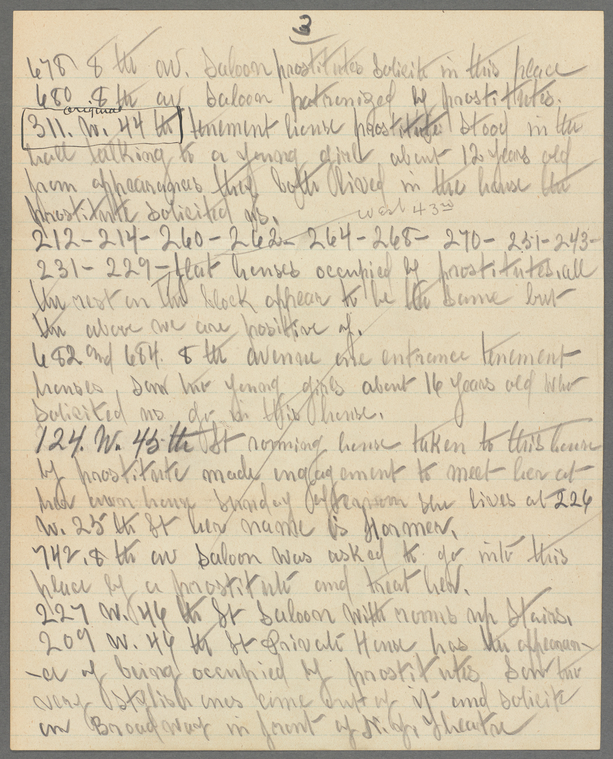 3
678 8th av. Saloon prostitutes solicit in this place
680 8th av saloon patronized by prostitutes.
original
311. W. 44th tenement house prostitute stood in the
hall talking to a young girl about 12 years old
from appearances they both lived in the house the
prostitute solicited us.
West 43rd
212-214-260-262-264-268-270-251-243-
231-229-flat houses occupied by prostitutes, all
the rest on the block appear to be the same but
the above we are positive of.
682 and 684. 8th avenue one entrance tenement
houses, saw two young girls about 16 years old who
solicited us go in this house.
124. W. 45th St rooming house taken to this house
by prostitute made engagement to meet her at
her own house Sunday afternoon she lives at 226
W. 25th St her name is
742. 8th av saloon was asked to go into this
place by a prostitute and treat her.
227 W. 46th St Saloon with rooms up stairs.
209 W. 46th St Private House has the appearan-
-ce of being occupied by prostitutes. Saw two
very stylish ones come out of it and solicit
on Broadway in front of N.Y. Theatre